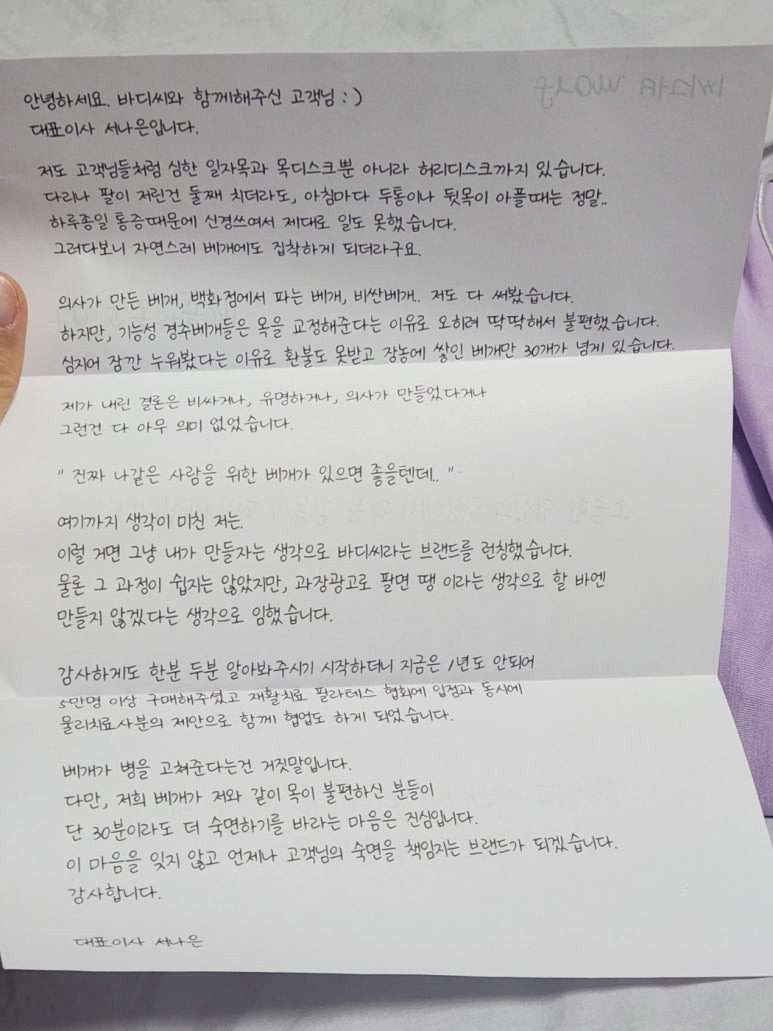 안녕하세요. 바디씨와 함께해주신 고객님 : )
대표이사 서나은입니다.
저도 고객님들처럼 심한 일자목과 목디스크뿐 아니라 허리디스크까지 있습니다.
다리나 팔이 저린건 둘째 치더라도, 아침마다 두통이나 뒷목이 아플때는 정말..
하루종일 통증때문에 신경쓰여서 제대로 일도 못했습니다.
그러다보니 자연스레 베개에도 집착하게 되더라구요.
의사가 만든 베개, 백화점에서 파는 베개, 비싼베개.. 저도 다 써봤습니다.
하지만, 기능성 경추베개들은 목을 교정해준다는 이유로 오히려 딱딱해서 불편했습니다.
심지어 잠깐 누워봤다는 이유로 환불도 못받고 장농에 쌓인 베개만 30개가 넘게 있습니다.
제가 내린 결론은 비싸거나, 유명하거나, 의사가 만들었다거나
그런건 다 아무 의미 없었습니다.
" 진짜 나같은 사람을 위한 베개가 있으면 좋을텐데.. "
여기까지 생각이 미친 저는.
이럴 거면 그냥 내가 만들자는 생각으로 바디씨라는 브랜드를 런칭했습니다.
물론 그 과정이 쉽지는 않았지만, 과장광고로 팔면 땡 이라는 생각으로 할 바엔
만들지 않겠다는 생각으로 임했습니다.
감사하게도 한분 두분 알아봐주시기 시작하더니 지금은 1년도 안되어
5만명 이상 구매해주셨고 재활치료 필라테스 협회에 입점과 동시에
물리치료사분의 제안으로 함께 협업도 하게 되었습니다.
베개가 병을 고쳐준다는건 거짓말입니다.
다만, 저희 베개가 저와 같이 목이 불편하신 분들이
단 30분이라도 더 숙면하기를 바라는 마음은 진심입니다.
이 마음을 잊지 않고 언제나 고객님의 숙면을 책임지는 브랜드가 되겠습니다.
감사합니다.
대표이사 서나은